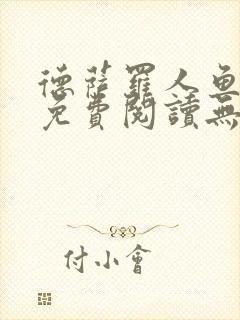 德薩羅人魚
免費閱讀無
付小會